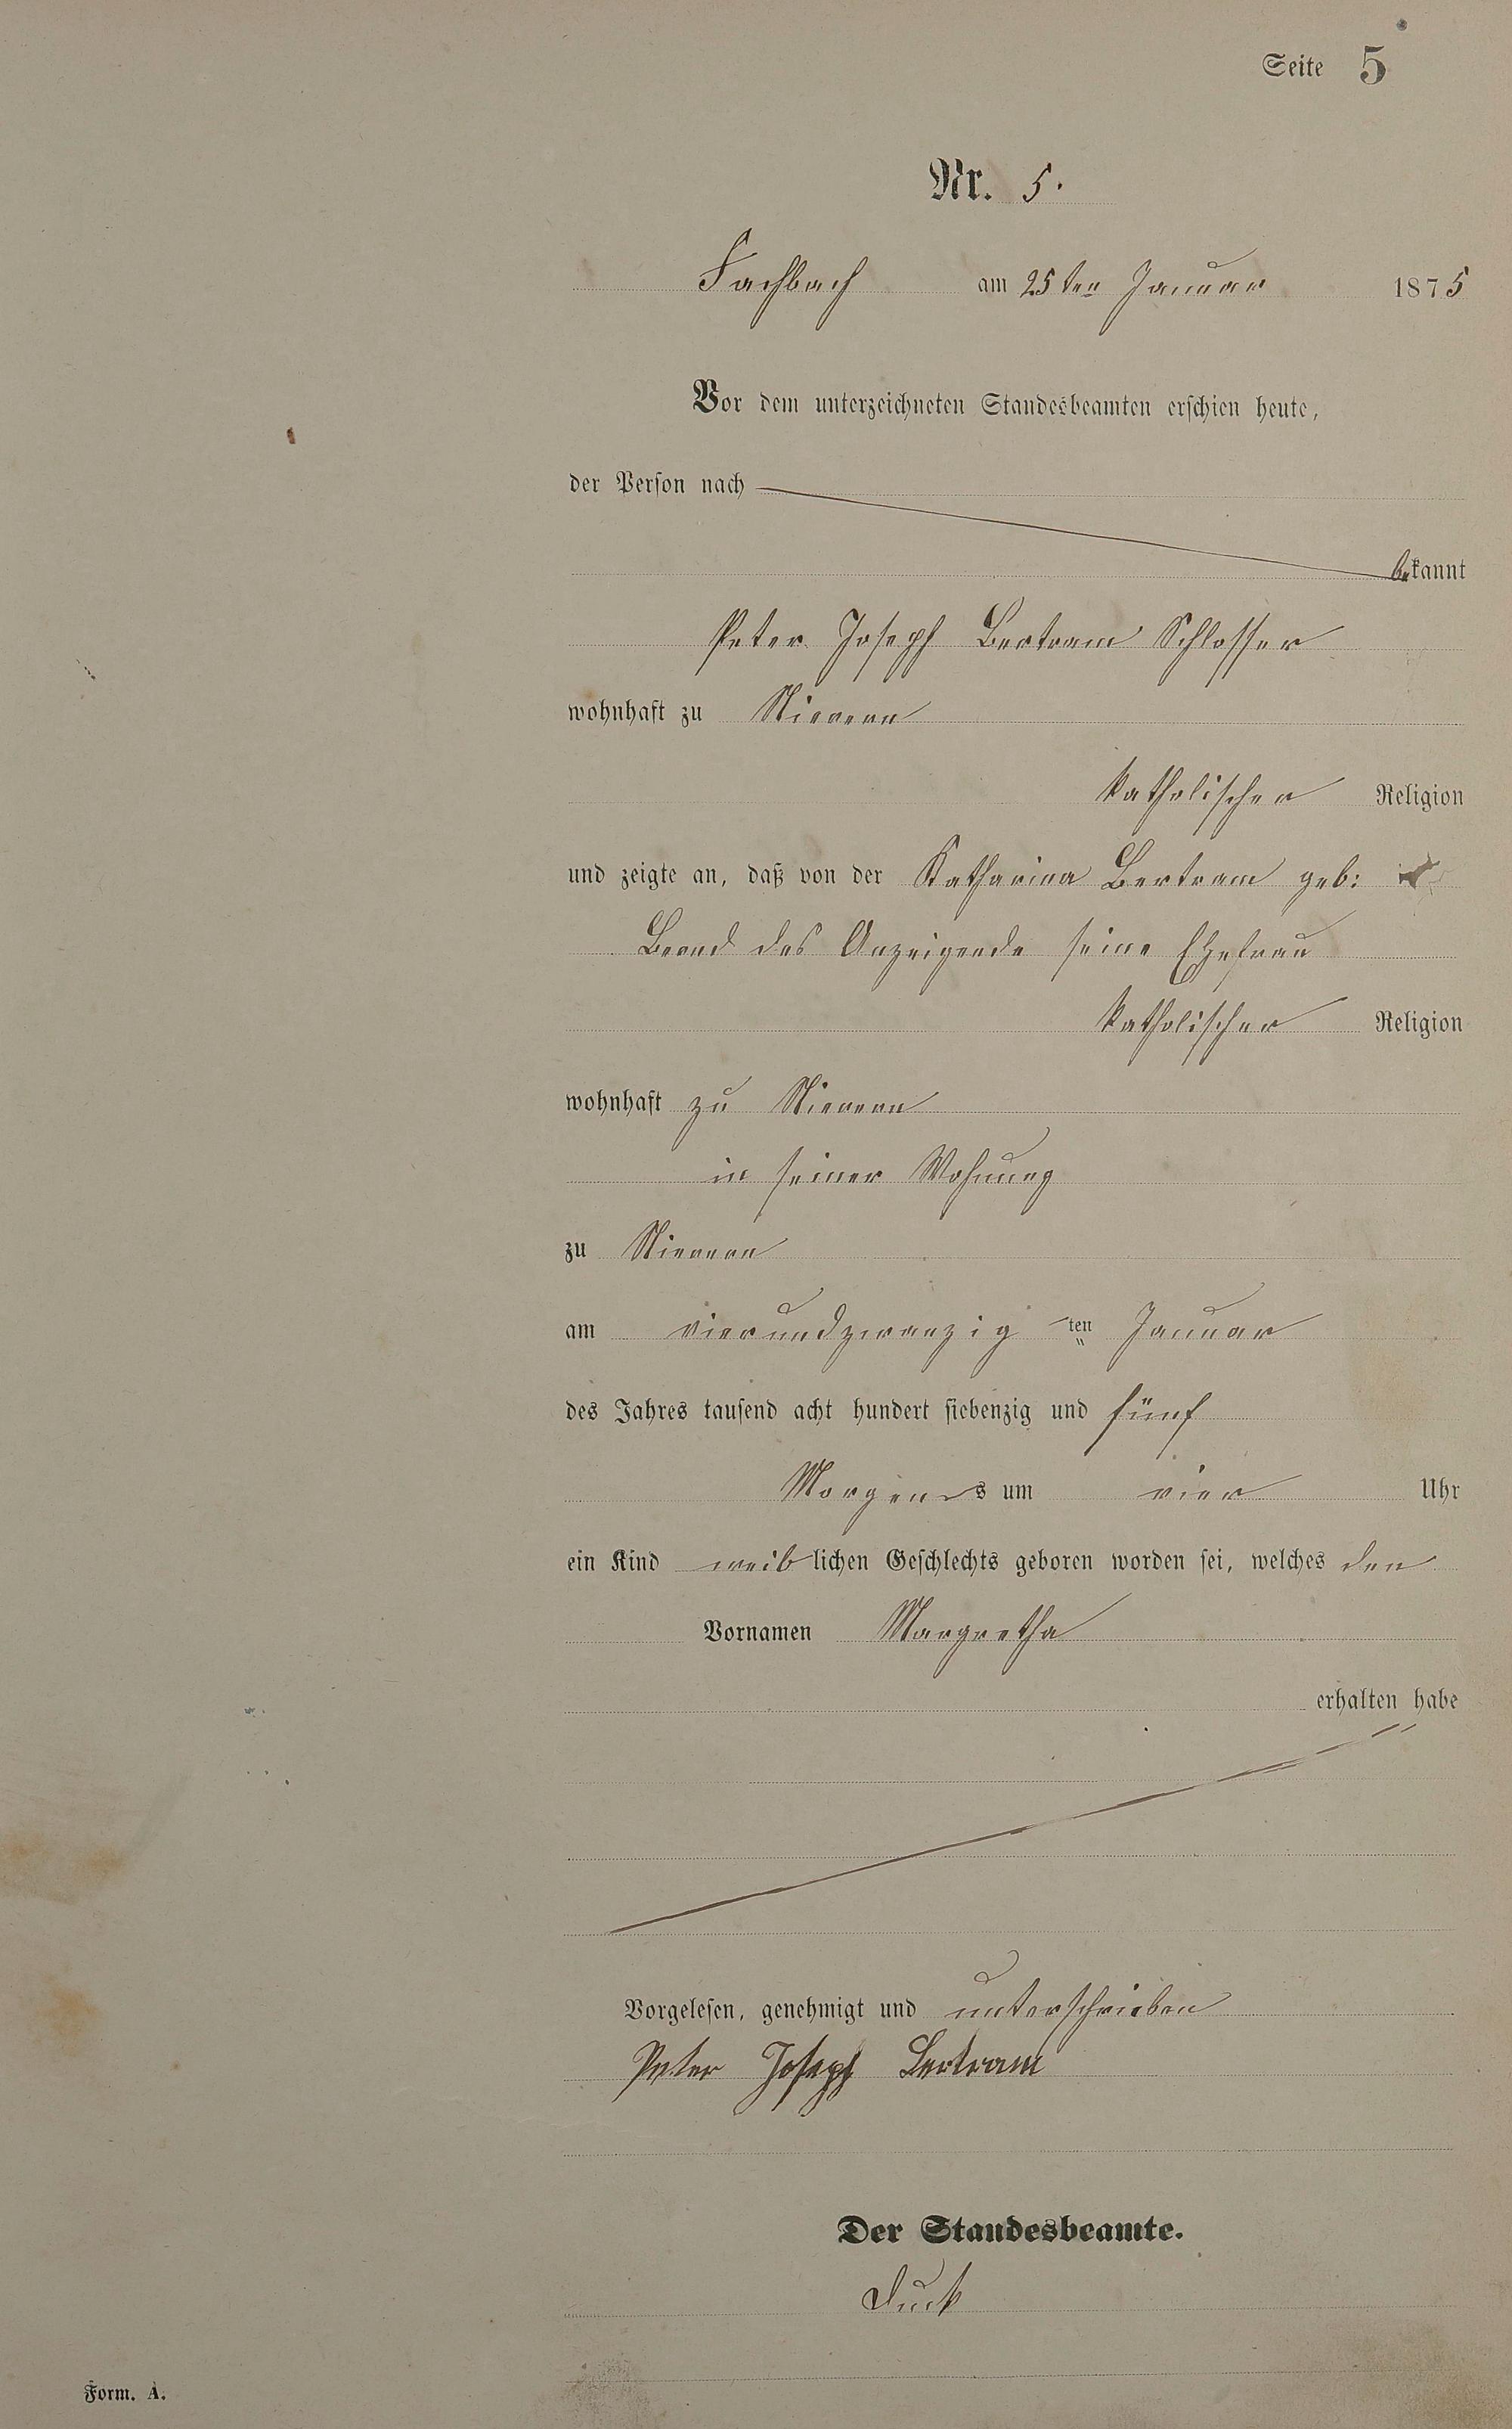 Seite 5
Nr. 5.
Fachbach am 25ten Januar 1875
Vor dem unterzeichneten Standesbeamten erschien heute,
der Person nach
bekannt
Peter Joseph Bertram Schlosser
wohnhaft zu Nievern
katholischer Religion
und zeigte an, daß von der Katharina Bertram geb:
des Anzeigende seine Ehefrau
katholischer Religion
wohnhaft zu Nievern
in seiner Wohnung
zu Nievern
am vierundzwanzig ten Januar
des Jahres tausend acht hundert siebenzig und fünf
Morgens um vier Uhr
ein Kind weiblichen Geschlechts geboren worden sei, welches den
Vornamen Margretha
erhalten habe
Vorgelesen, genehmigt und unterschrieben
Peter Joseph Bertram
Der Standesbeamte.
Duck
Form. A.